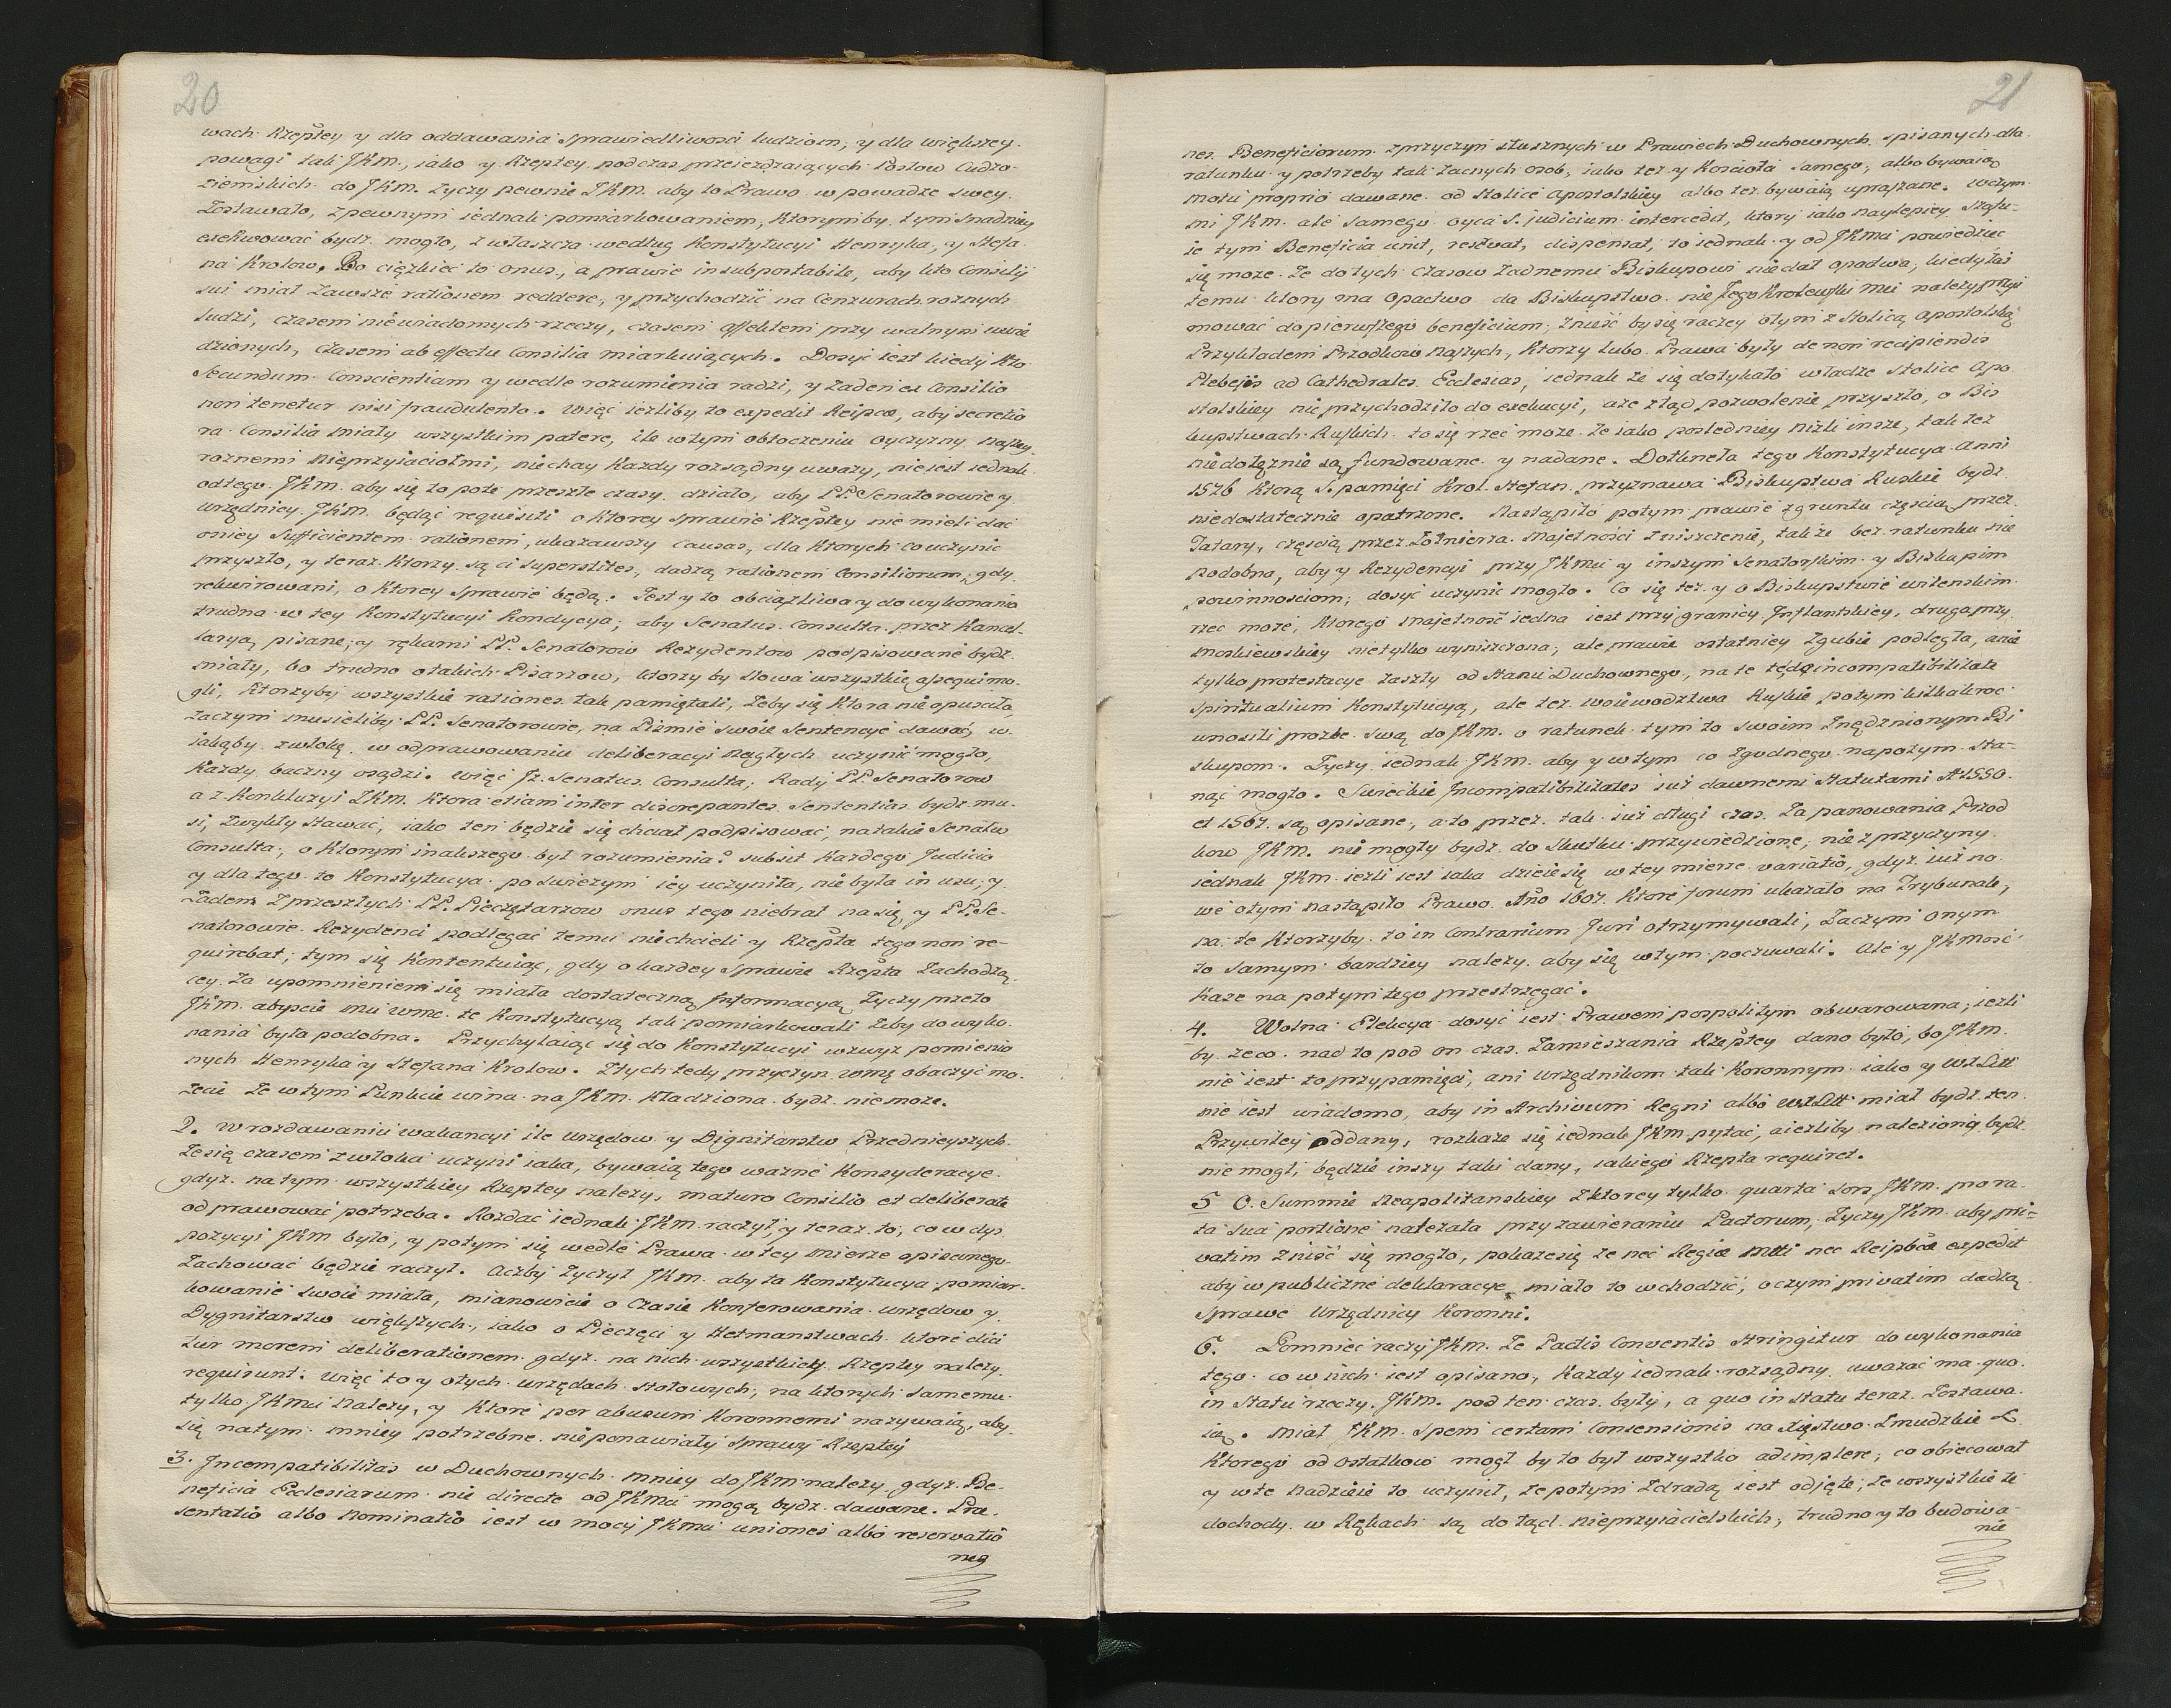 20
wach Rzeptey y dla oddawania sprawiedliwosci ludziom, y dla większey
powagi tak JKM., iako y Rzeptey, podczas przeiezdzaiących Posłow Cudzo-
ziemskich do JKM. Zyczy pewnie IKM. aby to Prawo w powadze swey
Zostawało, z pewnym iednak pomiarkowaniem, ktorymby tym snadniey
exekwować bydz mogło, z właszcza według Konstytucyi Henryka, y Stefa
na Krolow. Bo cięzkieć to onus, a prawie insubportabile, aby kto Consilij
sui miał zawsze rationem reddere, y przychodzić na Cenzurach roznych
ludzi, czasem niewiadomych rzeczy, czasem affektem przy walnym uwie
dzionych, Czasem ab effectu Consilia miarkuiących. Dosyć iest kiedy kto
Secundum Conscientiam y wedle rozumienia radzi, y zaden ex Consilio
non tenetur nisi fraudulento. Więć iezliby to expedit Reipcæ, aby secretio
ra Consilia miały wszystkim patere, ile w tym obtoczeniu oyczyzny naszey
roznemi nieprzyiaciołmi, niechay kazdy rozsądny uwazy, nie iest iednak
od tego JKM. aby się to pote przeszłe czasy działo, aby PP. Senatorowie y
Urzędnicy JKM. będąc requisiti o ktorey sprawie Rzeptey nie mieli dać
oniey Sufficientem rationem, ukazawszy Causas, dla ktorych co uczynic
przyszło, y teraz ktorzy są ci superstites, dadzą rationem Consiliorum, gdy
rekwirowani, o ktorey sprawie będą. Jest y to obciązliwa y do wykonania
trudna w tey Konstytucyi Kondycya; aby Senatus Consulta przez Kancel-
laryą pisane; y rękami PP. Senatorow Rezydentow podpisowane bydz
miały, bo trudno o takich Pisarzow, ktorzy by słowa wszystkie assequi mo-
gli, ktorzyby wszystkie rationes tak pamiętali, zeby się ktora nie opuscila,
zaczym musieliby PP. Senatorowie, na Pismie swoie Sentencye dawać, w
iakąby zwłokę w odprawowaniu deliberacyi nagłych uczynić mogło,
kazdy baczny osądzi. Więć Jz. Senatus Consulta; Rady PP. Senatorow
a z Konkluzyi IKM. ktora etiam inter discrepantes Sententias bydz mu-
si, zwykły stawać, iako ten będzie się chciał podpisować, na takie Senatus
Consulta, o ktorym inakszego był rozumienia? subsit kazdego Judicio
y dla tego to Konstytucya po swiezym iey uczyniła, nie była in usu; y
Zaden z przeszłych PP. Pieczętarzow onus tego niebrał na się, y PP. Se-
natorowie Rezydenci podlegać temu niechcieli y Rzepta tego non re-
quirebat, tym się kontentuiąc, gdy o kazdey sprawie Rzepta zachodzą
cey za upomnieniem się miała dostateczną Informacyą Zyczy przeto
JKM. abyscie mu Wmc. te Konstytucyą tak pomiarkowali zeby do wyko-
nania była podobna. Przychylaiąc się do Konstytucyi wzwyz pomienio
nych Henryka y Stefana Krolow. Ztych tedy przyczyn wmę obaczyć mo-
zecie ze w tym Punkcie wina na JKM. kładziona bydz nie moze.
2. W rozdawaniu wakancyi ile urzędow y Dignitarstw Przednieyszych
ze się czasem zwłoka uczyni iaka, bywaią tego wazne Konsyderacye.
gdyz na tym wszystkiey Rzeptey nalezy, maturo Consilio et deliberate
odprawować potrzeba. Rozdać iednak JKM. raczył, y teraz to, co w dys
pozycyi JKM było, y potym się wedle Prawa w tey mierze opisanego
Zachować będzie raczył. Aczby zyczył JKM. aby ta Konstytucya pomiar-
kowanie swoie miała, mianowicie o Czasie Konferowania urzędow y
Dygnitarstw większych, iako o Pieczęci y Hetmanstwach ktore diu
tur morem deliberationem gdyz na nich wszystkiey Rzeptey nalezy.
requirunt. Więc to y o tych urzędach stołowych, na ktorych samemu
tylko JKmci nalezy, y ktore per abusum Koronnemi nazywaią, aby
się na tym mniey potrzebne nieponawiały sprawy Rzeptey
3. Incompatibilitas w Duchownych mniey do JKM nalezy gdyz Be-
neficia Ecclesiarum nie directe od JKmci mogą bydz dawane. Præ-
sentatio albo Nominatio iest w mocy JKmci uniones albo reservatio
nes
21
nes Beneficiorum z przyczyn słusznych w Prawiech Duchownych spisanych dla
ratunku y potrzeby tak zacnych osob, iako tez y Kościoła samego, albo bywaią
motu proprio dawane od Stolice Apostolskiey albo tez bywaią upraszane. W czym
mi JKM. ale samego oyca S. judicium intercedit, ktory iako naylepiey szafu-
ie tym Beneficia unit, reservat, dispensat, to iednak y od JKmci powiedziec
się moze. ze do tych czasow zadnemu Biskupowi nie dał opactwa, kiedyłas
temu ktory ma Opactwo da Biskupstwo nie Jego Krolewski Mci nalezy przyi
mować do pierwszego beneficium; znieść by się raczey o tym z Stolicą Apostolską
Przykładem Przodkow naszych, ktorzy lubo Prawa były de non recipiendis
Plebejis ad Cathedrales Ecclesias, iednak ze się dotykało władze Stolice Apo-
stolskiey nie przychodziło do exekucyi, aze ztąd pozwolenie przyszło, o Bis
kupstwach Ruskich to się rzec moze. ze iako posledniey nizli insze, tak tez
niedołęznie są fundowane y nadane. Dotknęła tego Konstytucya Anni
1576 ktorą S. pamięci Krol. Stefan przyznawa Biskupstwa Ruskie bydz
niedostatecznie opatrzone. Nastąpiło potym prawie z gruntu częscią przez
Tatary, częscią przez Zołnierza majetności zniszczenie, tak ze bez ratunku nie
podobna, aby y Rezydencyi przy JKmci y inszym Senatorskim y Biskupim
powinnosciom; dosyc uczynic mogło. Co się tez y o Biskupstwie wilenskim
rzec moze, ktorego majetność iedna iest przy granicy Inflantskiey, druga przy
Moskiewskiey nietylko wyniszczona, ale prawie ostatniey zgubie podległa, a nie
tylko protestacye zaszły od Stanu Duchownego, na te tęde incompatibilitate
spiritualium Konstytucyą, ale tez woiewodztwa Ruskie potym kilkakroc
unosili prozbe swą do JKM. o ratunek tym to swoim znędznionym Bi
skupom. Zyczy iednak JKM. aby y w tym co zgodnego napotym sta-
nąć mogło. Swieckie Incompatibilitates iuz dawnemi Statutami A° 1550.
et 1567. są opisane, a to przez tak iuz długi czas. Za panowania Przod
kow JKM. nie mogły bydz do skutku przywiedzione, nie z przyczyny
iednak JKM. iezli iest iaka dzieie się w tey mierze variatio, gdyz iuz no
we o tym nastąpiło Prawo. Año 1607. Ktore forum ukazało na Trybunale,
na te ktorzyby to in Contrarium Juri otrzymywali, Zaczym onym
to samym bardziey nalezy aby się w tym poczuwali. Ale y JKMość
kaze na potym tego przestrzegać.
4. Wolna Elekcya dosyc iest Prawem pospolitym obwarowana; iezli
by zeco nad to pod on czas Zamieszania Rzeptey dano było, bo JKM.
nie iest to przypamięci, ani Urzędnikom tak Koronnym iako y WXLitt
nie iest wiadomo, aby in Archivum Regni albo WXLitt miał bydz ten
Przywiley oddany, rozkaze się iednak JKM. pytać, a iezliby naleziony bydz
nie mogł, będzie inszy taki dany, iakiego Rzepta requiret.
5 O. Summie Neapolitanskiey z ktorey tylko quarta sors JKM. pro ra-
ta sua portione nalezała przy zawieraniu Pactorum, Zyczy JKM. aby pri-
vatim znieść się mogło, pokaze się ze nec Regiæ Mtti nec Reipbcæ expedit
aby w publiczne deklaracye miało to wchodzić, o czym privatim dadzą
sprawe Urzędnicy Koronni.
6. Pomniec raczy JKM. ze Pactis Conventis stringitur do wykonania
tego co w nich iest opisano, kazdy iednak rozsądny uwazać ma quo
in statu rzeczy JKM. pod ten czas były, a quo in statu teraz Zostawa
ią. Miał JKM. spem certam Consensionis na Xięstwo Zmudzkie &
ktorego od ostatkow mogł by to był wszystko adimplere; co obiecował
y w te nadzieie to uczynił, ze potym zdradą iest odjęte; ze wszystkie te
dochody w Rękach są dotąd nieprzyiacielskich, trudno y to budowa-
nie